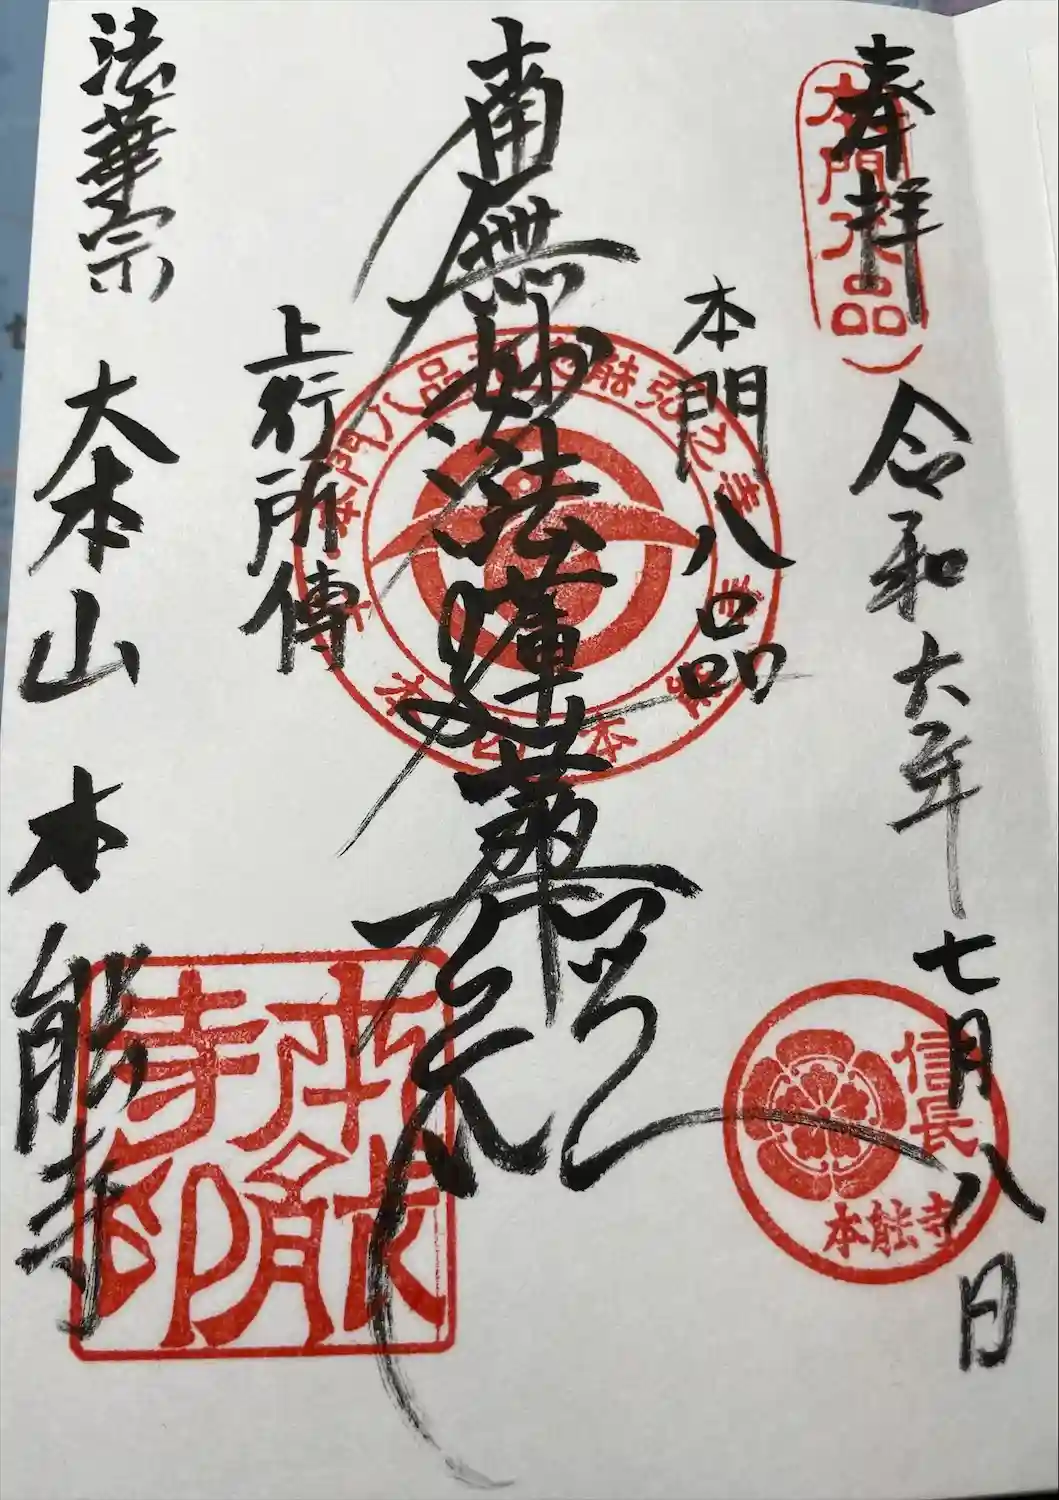 奉拝
令和六年七月八日
本門八品
信長
本能寺
本門八品
南無妙法蓮華經
上行所傳
法華宗
大本山 本能寺
本能寺印